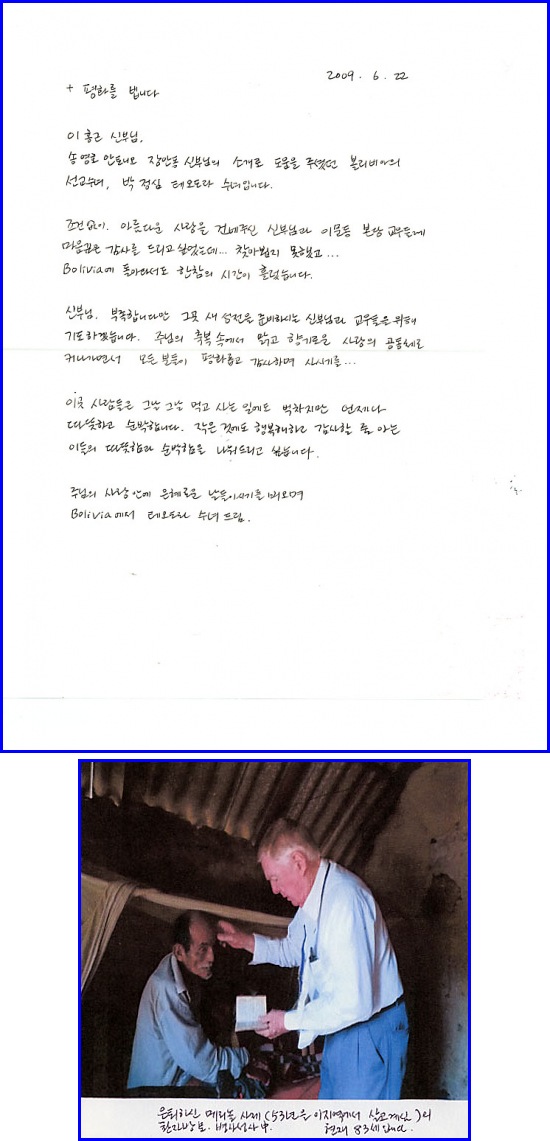 2009. 6. 22
+ 평화를 빕니다
이 홍근 신부님,
송영호 안토니오 장안동 신부님의 소개로 도움을 주셨던 볼리비아의
선교수녀, 박 정심 테오도라 수녀입니다.
조건없이. 아름다운 사랑을 건네주신 신부님과 이문동 본당 교우들께
마음깊은 감사를 드리고 싶었는데... 찾아뵙지 못하였고...
Bolivia에 돌아와서도 한참의 시간이 흘렀습니다.
신부님. 부족합니다만 그곳 새 성전을 준비하시는 신부님과 교우들을 위해
기도하겠습니다. 주님의 축복 속에서 맑고 향기로운 사랑의 공동체로
커나가면서 모든 분들이 평화롭고 감사하며 사시기를...
이곳 사람들은 그날 그날 먹고 사는 일에도 벅차지만 언제나
따뜻하고 순박합니다. 작은 것에도 행복해하고 감사할 줄 아는
이들의 따뜻함과 순박함을 나눠드리고 싶습니다.
주님의 사랑 안에 은혜로운 날들이시기를 바라며
Bolivia에서 테오도라 수녀 드림.
은퇴하신 메리놀 사제 (53년을 이지역에서 살고계신)의
환자방문. 병자성사 中. 현재 83세입니다.